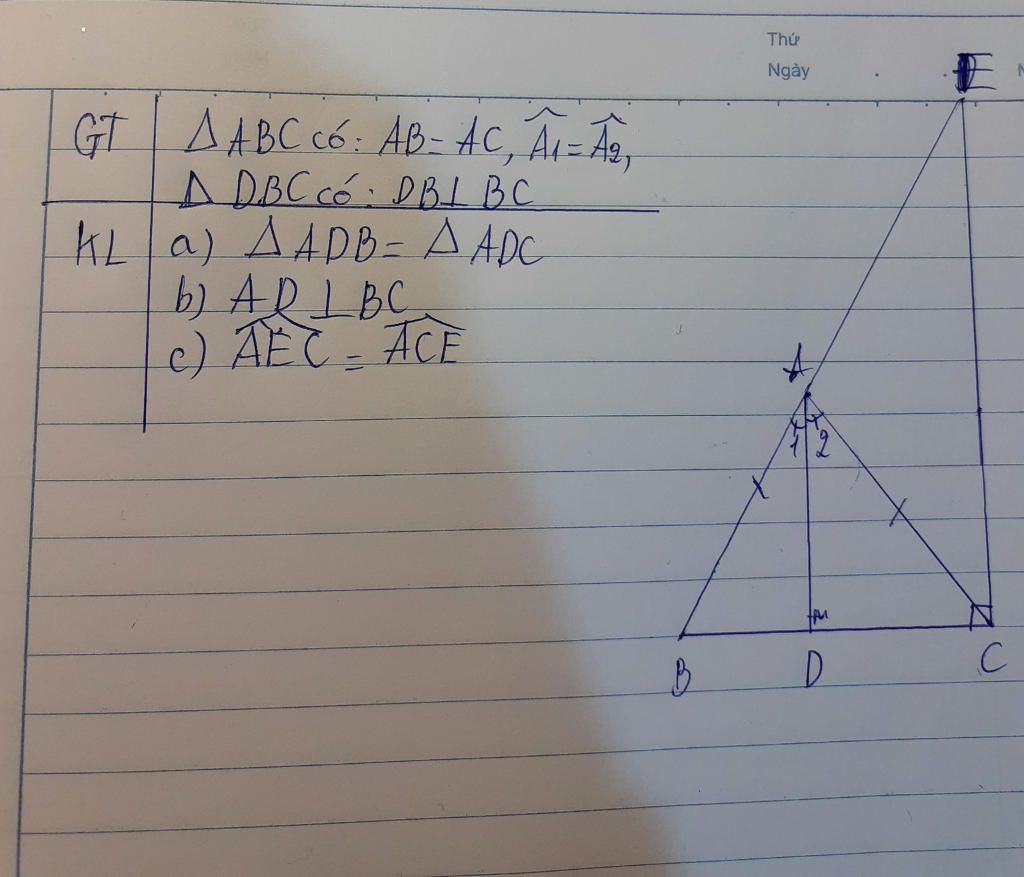 Thứ
Ngày
E
GT ΔABC có: AB = AC, Â1 = Â2,
Δ DBC có: DB⊥BC
KL a) ΔADB = ΔADC
b) AD ⊥ BC
c) \widehat{AEC} = \widehat{ACE}
A
1 2
B D C